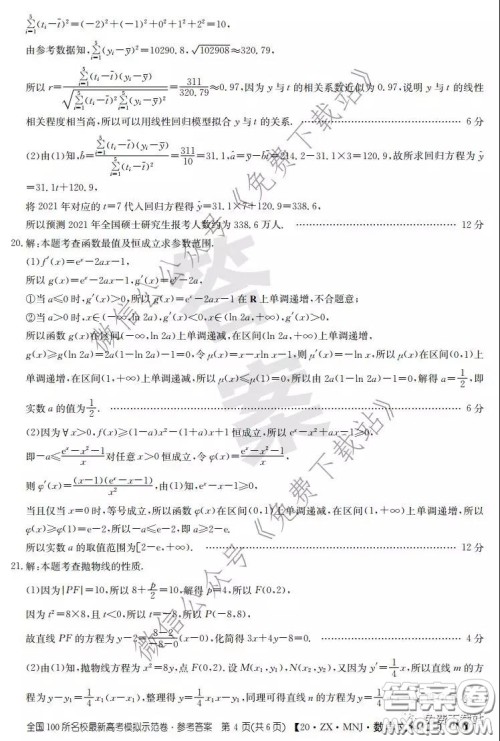 ∑(tᵢ-t̄)²=(-2)²+(-1)²+0²+1²+2²=10,
由参考数据知,∑(yᵢ-ȳ)²=10290.8,√102908≈320.79,
所以 r=∑(tᵢ-t̄)(yᵢ-ȳ)/√(∑(tᵢ-t̄)²∑(yᵢ-ȳ)²)≈311/320.79≈0.97,因为 y 与 t 的相关系数近似为 0.97,说明 y 与 t 的线性
相关程度相当高,所以可以用线性回归模型拟合 y 与 t 的关系. 6 分
(2)由(1)知,b̂=∑(tᵢ-t̄)(yᵢ-ȳ)/∑(tᵢ-t̄)²=311/10=31.1,â=ȳ-b̂t̄=214.2-31.1×3=120.9,故所求回归方程为 ŷ
=31.1t+120.9,
将 2021 年对应的 t=7 代入回归方程得 ŷ=31.1×7+120.9=338.6,
所以预测 2021 年全国硕士研究生报考人数约为 338.6 万人. 12 分
20.解:本题考查函数最值及恒成立求参数范围.
(1)f′(x)=eˣ-2ax-1,
所以 g(x)=eˣ-2ax-1,g′(x)=eˣ-2a,
①当 a≤0 时,g′(x)>0,所以 g(x)=eˣ-2ax-1 在 R 上单调递增,不合题意;
②当 a>0 时,x∈(-∞,ln 2a),g′(x)<0,x∈(ln 2a,+∞),g′(x)>0,
所以函数 g(x)在区间(-∞,ln 2a)上单调递减,在区间(ln 2a,+∞)上单调递增,
g(x)≥g(ln 2a)=2a(1-ln 2a)-1=0,令 μ(x)=x-xln x-1,则 μ′(x)=-ln x,所以 μ(x)在区间(0,1)上
单调递增,在区间(1,+∞)上单调递减,所以 μ(x)≤μ(1)=0,所以由 2a(1-ln 2a)-1=0,解得 a=1/2,即
实数 a 的值为1/2. 6 分
(2)因为∀x>0,f(x)≥(1-a)x²-(1+a)x+1 恒成立,所以 eˣ-x²+ax-1≥0,
即-a≤(eˣ-x²-1)/x 对任意 x>0 恒成立,令 φ(x)=(eˣ-x²-1)/x,
则 φ′(x)=(x-1)(eˣ-x-1)/x²,由(1)知,eˣ-x-1≥0,
当且仅当 x=0 时,等号成立,所以函数 φ(x)在区间(0,1)上单调递减,在区间(1,+∞)上单调递增,所以
φ(x)≥φ(1)=e-2,所以-a≤e-2,即 a≥2-e.
所以实数 a 的取值范围为[2-e,+∞). 12 分
21.解:本题考查抛物线的性质.
(1)因为|PF|=10,所以 8+p/2=10,解得 p=4,所以 F(0,2).
因为 t²=8×8,且 t<0,所以 t=-8,所以 P(-8,8),
故直线 PF 的方程为 y-2=(8-2)/(-8-0)(x-0),化简得 3x+4y-8=0. 4 分
(2)由(1)知,抛物线方程为 x²=8y,点 F(0,2).设 M(x₁,y₁),N(x₂,y₂),
全国100所名校最新高考模拟示范卷·参考答案 第 4 页(共 6 页) 【20·ZX·MNJ·数
微信公众号《免费下载站》
微信公众号《免费下载站》
答案